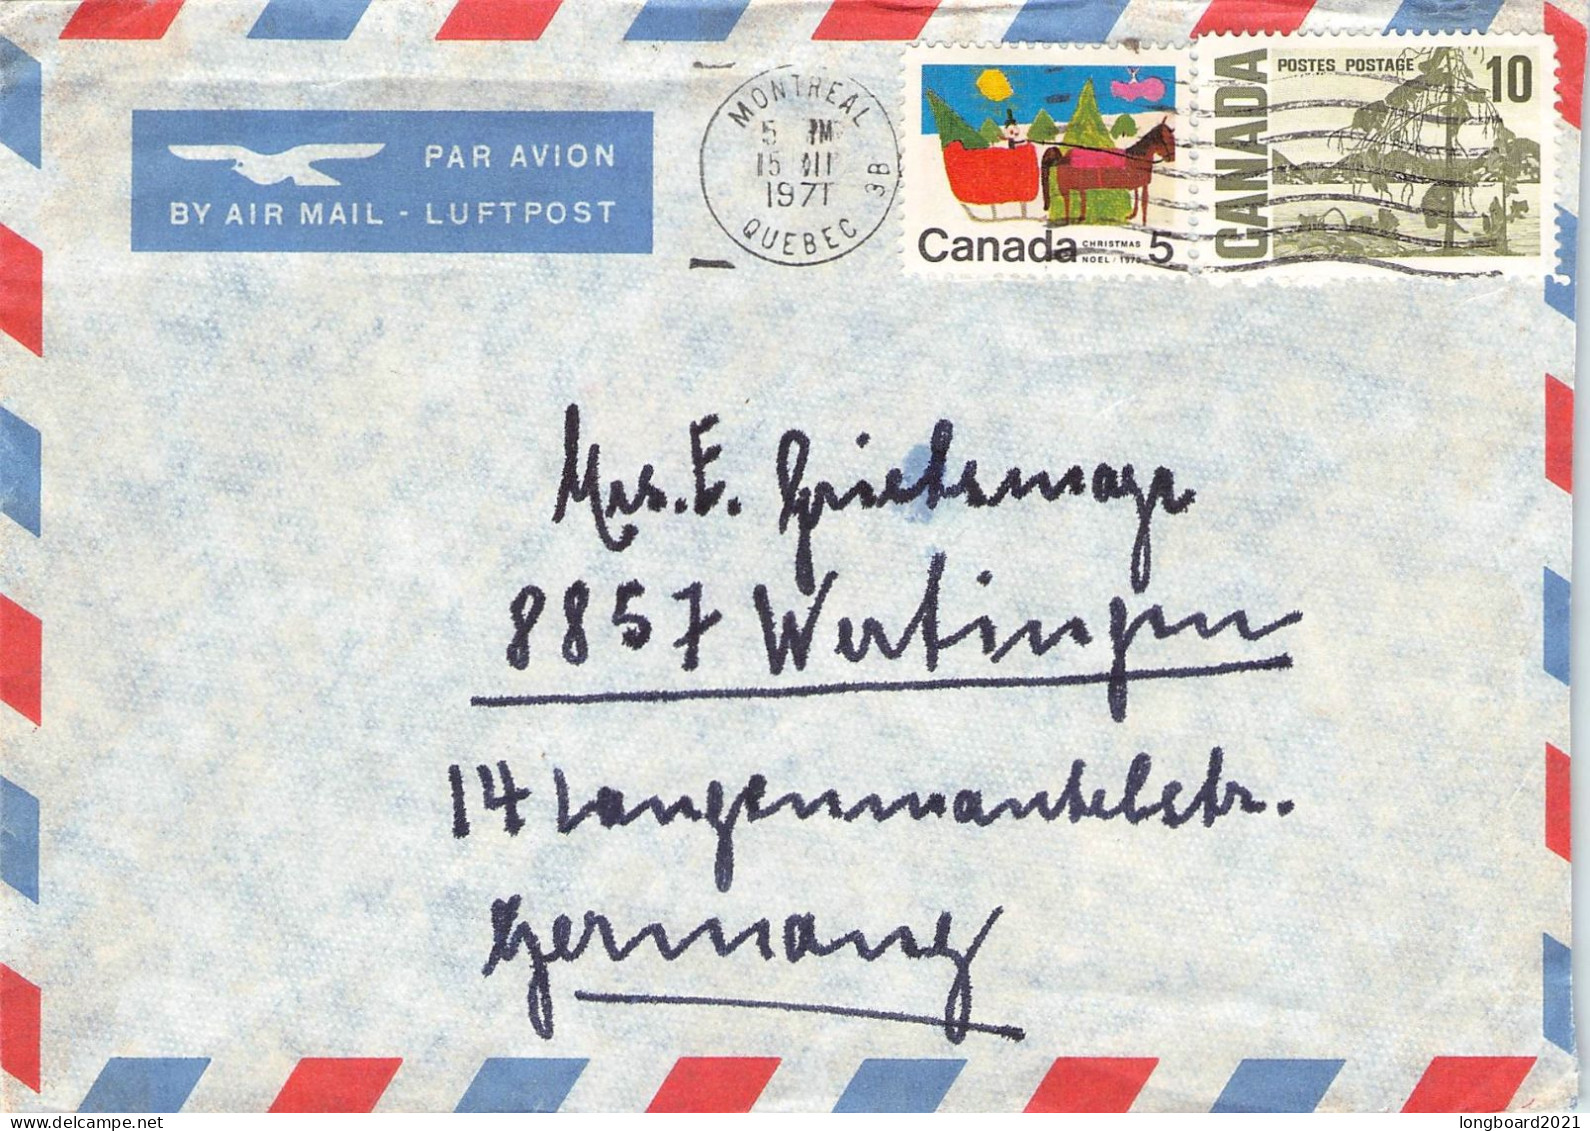 MONTREAL
5 PM
15 VII
1971
QUEBEC
3B
Canada
CHRISTMAS
NOEL / 1970
5
CANADA
POSTES POSTAGE
10
PAR AVION
BY AIR MAIL - LUFTPOST
Mrs. E.
8857 Wertingen
14 Langenmantelstr.
Germany
longboard2021